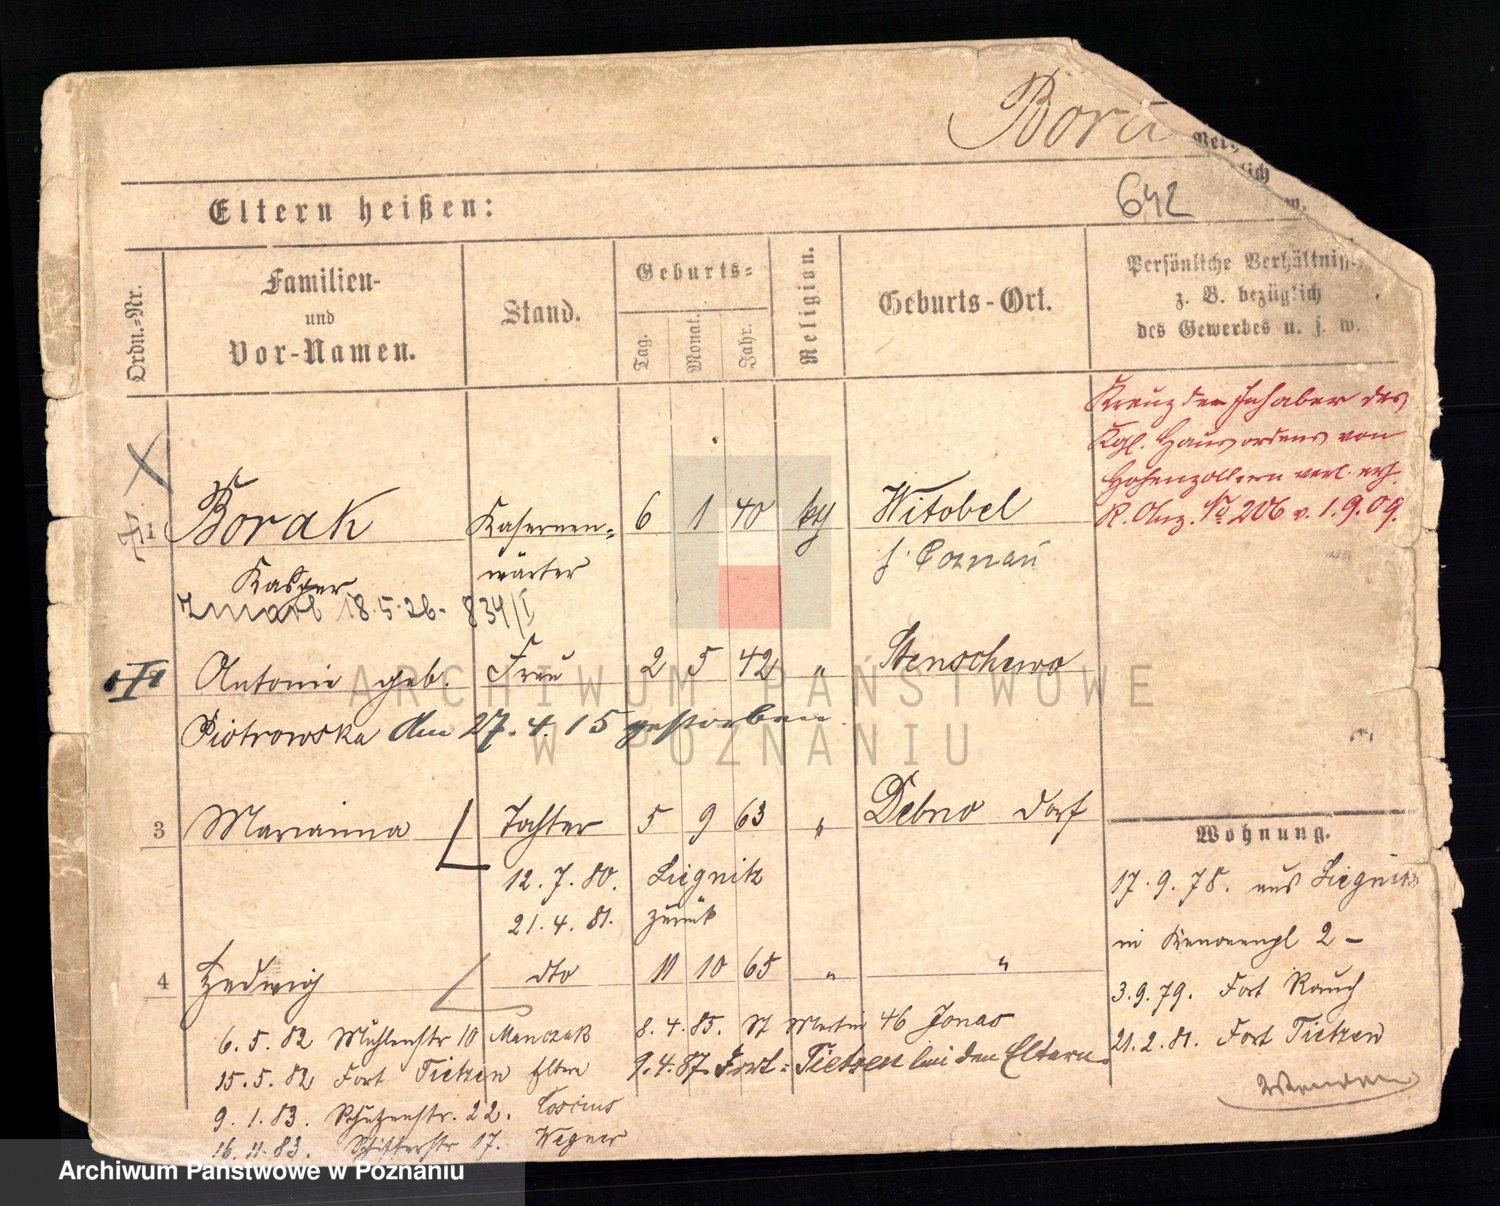 Bora
642
Eltern heißen:
Ordn.-Nr.
Familien-
und
Vor-Namen.
Stand.
Geburts-
Tag.
Monat.
Jahr.
Religion.
Geburts-Ort.
Persönliche Verhältnisse
z. B. bezüglich
des Gewerbes u. s. w.
Kreuz der Inhaber des
Kgl. Hausordens von
Hohenzollern verl. erh.
R. Anz. No 206 v. 1.9.09.
1 Borak Kasernen- 6 1 40 kth Witobel
Kasper wärter f. Poznań
zmarł 18.5.26. 834/I
Antonie geb. Frau 2 5 42 " Stenschewo
Piotrowska Am 27.4.15 gestorben.
3 Marianna Tochter 5 9 63 " Debno Dorf
12.7.80. Liegnitz
21.4.81. zurück
4 Hedwig dto 11 10 65 " "
6.5.82 Mühlenstr 10 Manczak 8.4.85. St Martin 46 Jonas
15.5.82 Fort Tietzen Eltern 9.4.87 Fort-Tietzen bei den Eltern
9.1.83. Schützenstr. 22. Cossius
16.11.83. 17. Wegner
Wohnung.
17.9.78. aus Liegnitz
in 2 -
3.9.79. Fort Rauch
21.2.81. Fort Tietzen
Wenden
ARCHIWUM PAŃSTWOWE
W POZNANIU
Archiwum Państwowe w Poznaniu